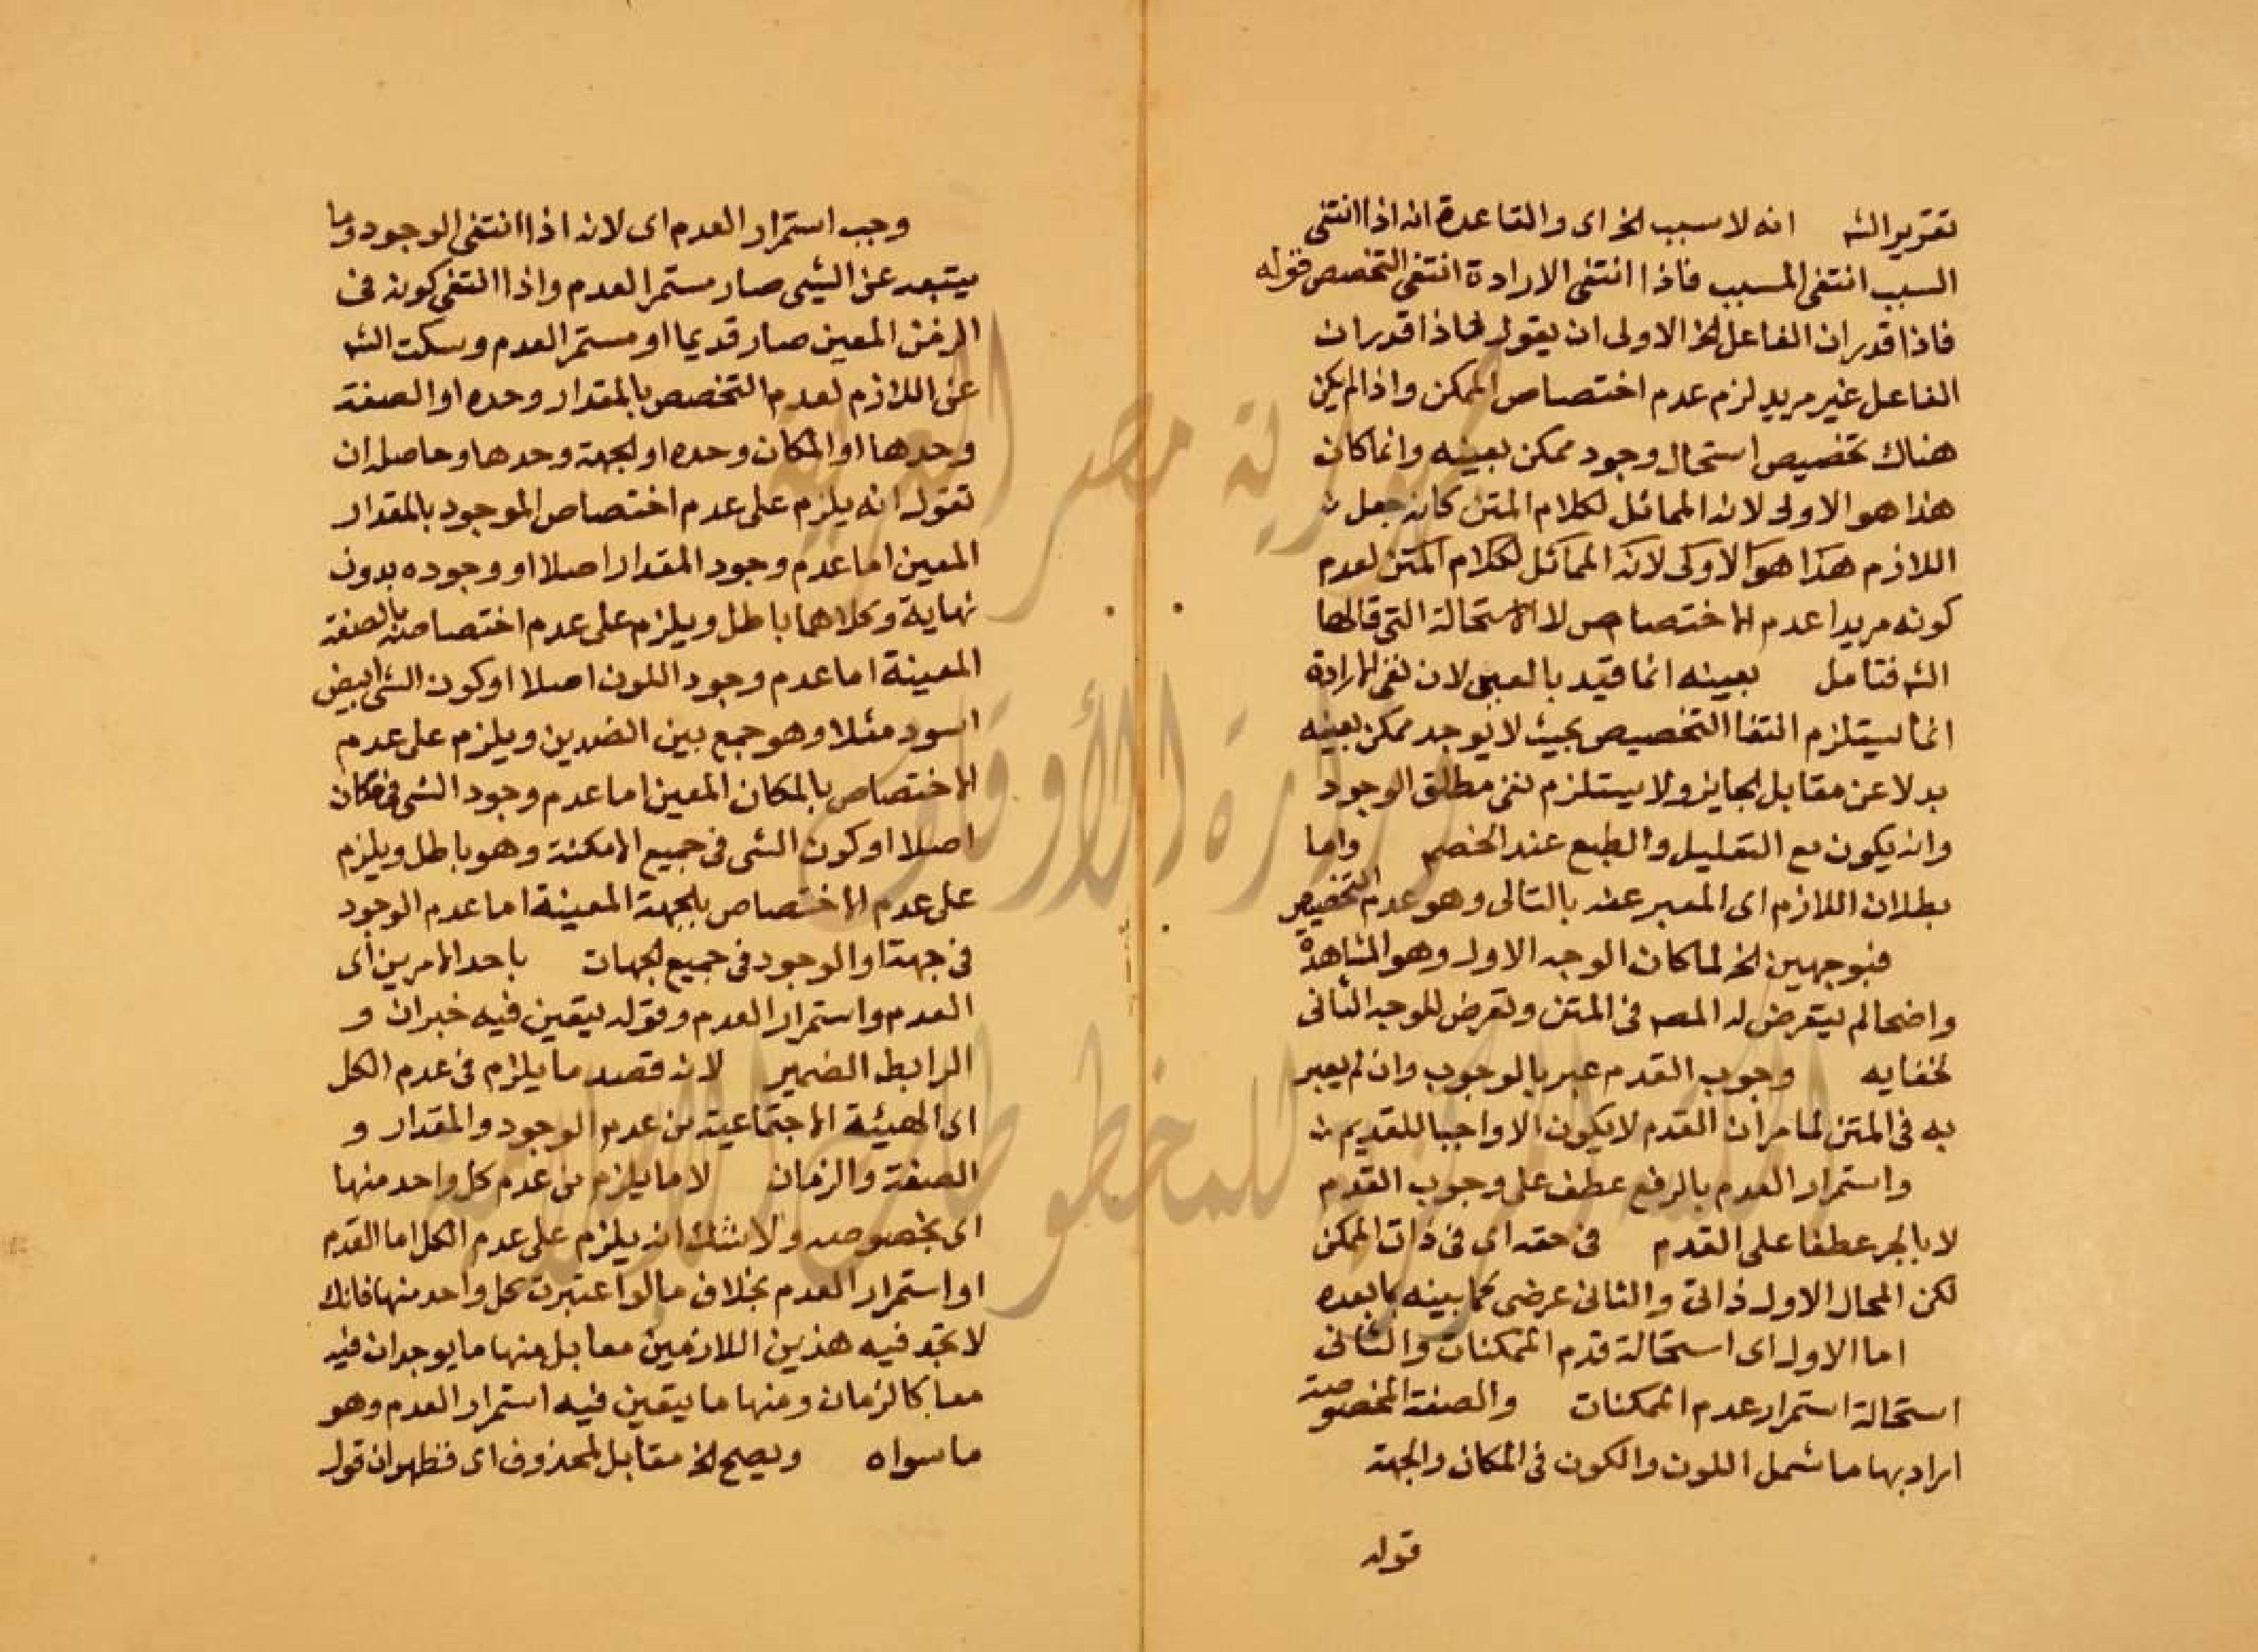 تقرير الشه انه لا سبب الخ اى والقاعدة انه اذا انتفى
السبب انتفى المسبب فاذا انتفى الارادة انتفى التخصص قوله
فاذا قدر ان الفاعل الخ الاولى ان يقول فاذا قدر ان
الفاعل غير مريد لزم عدم اختصاص الممكن واذا لم يكن
هناك تخصيص استحال وجود ممكن بعينه وانما كان
هذا هو الاولى لانه المماثل لكلام المتن كانه جعل
اللازم هذا هو الاولى لانه المماثل لكلام المتن لعدم
كونه مريدا عدم الاختصاص لا الاستحالة التى قالها
الشه فتامل بعينه انما قيد بالعين لان نفى الارادة
انما يستلزم انتفا التخصيص بحيث لا يوجد ممكن بعينه
بدلا عن مقابل الجايز ولا يستلزم نفى مطلق الوجود
وانه يكون مع التعليل والطبع عند الخصم واما
بطلان اللازم اى المعبر عنه بالتالى وهو عدم التخصيص
فبوجهين الخ لما كان الوجه الاول وهو المشاهدة
واضحا لم يتعرض له المصه فى المتن وتعرض للوجه الثانى
لخفايه وجوب القدم عبر بالوجوب وان لم يعبر
به فى المتن لما مر ان القدم لا يكون الا واجبا للقديم
واستمرار العدم بالرفع عطف على وجوب القدم
لا بالجر عطفا على القدم فى حقه اى فى ذات الممكن
لكن المحال الاول ذاتى والثانى عرضى كما بينه بما بعده
اما الاول اى استحالة قدم الممكنات والثانى
استحالة استمرار عدم الممكنات والصفة المخصوصة
اراد بها ما شمل اللون والكون فى المكان والجهة
قوله
وجب استمرار العدم اى لانه اذا انتفى الوجود وما
يتبعه عن الشيى صار مستمر العدم واذا انتفى كونه فى
الزمن المعين صار قديما او مستمر العدم وسكت الشه
عن اللازم لعدم التخصص بالمقدار وحده او الصفة
وحدها او المكان وحده او الجهة وحدها وحاصله ان
تقول انه يلزم على عدم اختصاص الموجود بالمقدار
المعين اما عدم وجود المقدار اصلا او وجوده بدون
نهاية وكلاهما باطل ويلزم على عدم اختصاصه بالصفة
المعينة اما عدم وجود اللون اصلا او كون الشى ابيض
اسود مثلا وهو جمع بين الضدين ويلزم على عدم
الاختصاص بالمكان المعين اما عدم وجود الشى فى مكان
اصلا او كون الشى فى جميع الامكنة وهو باطل ويلزم
على عدم الاختصاص بالجهة المعينة اما عدم الوجود
فى جهة او الوجود فى جميع الجهات باحد الامرين اى
العدم واستمرار العدم وقوله يتعين فيه خبران و
الرابط الضمير لانه قصد ما يلزم فى عدم الكل
اى الهيئة الاجتماعية من عدم الوجود والمقدار و
الصفة والزمان لا ما يلزم من عدم كل واحد منها
اى بخصوصه ولا شك انه يلزم على عدم الكل اما القدم
او استمرار العدم بخلاف ما لو اعتبرت كل واحد منها فانك
لا تجد فيه هذين اللازمين معا بل منها ما يوجدان فيه
معا كالزمان ومنها ما يتعين فيه استمرار العدم وهو
ما سواه ويصح الخ مقابل لمحذوف اى فظهر ان قوله
جمهورية مصر العربية
وزارة الأوقاف
المكتبة المركزية للمخطوطات الإسلامية